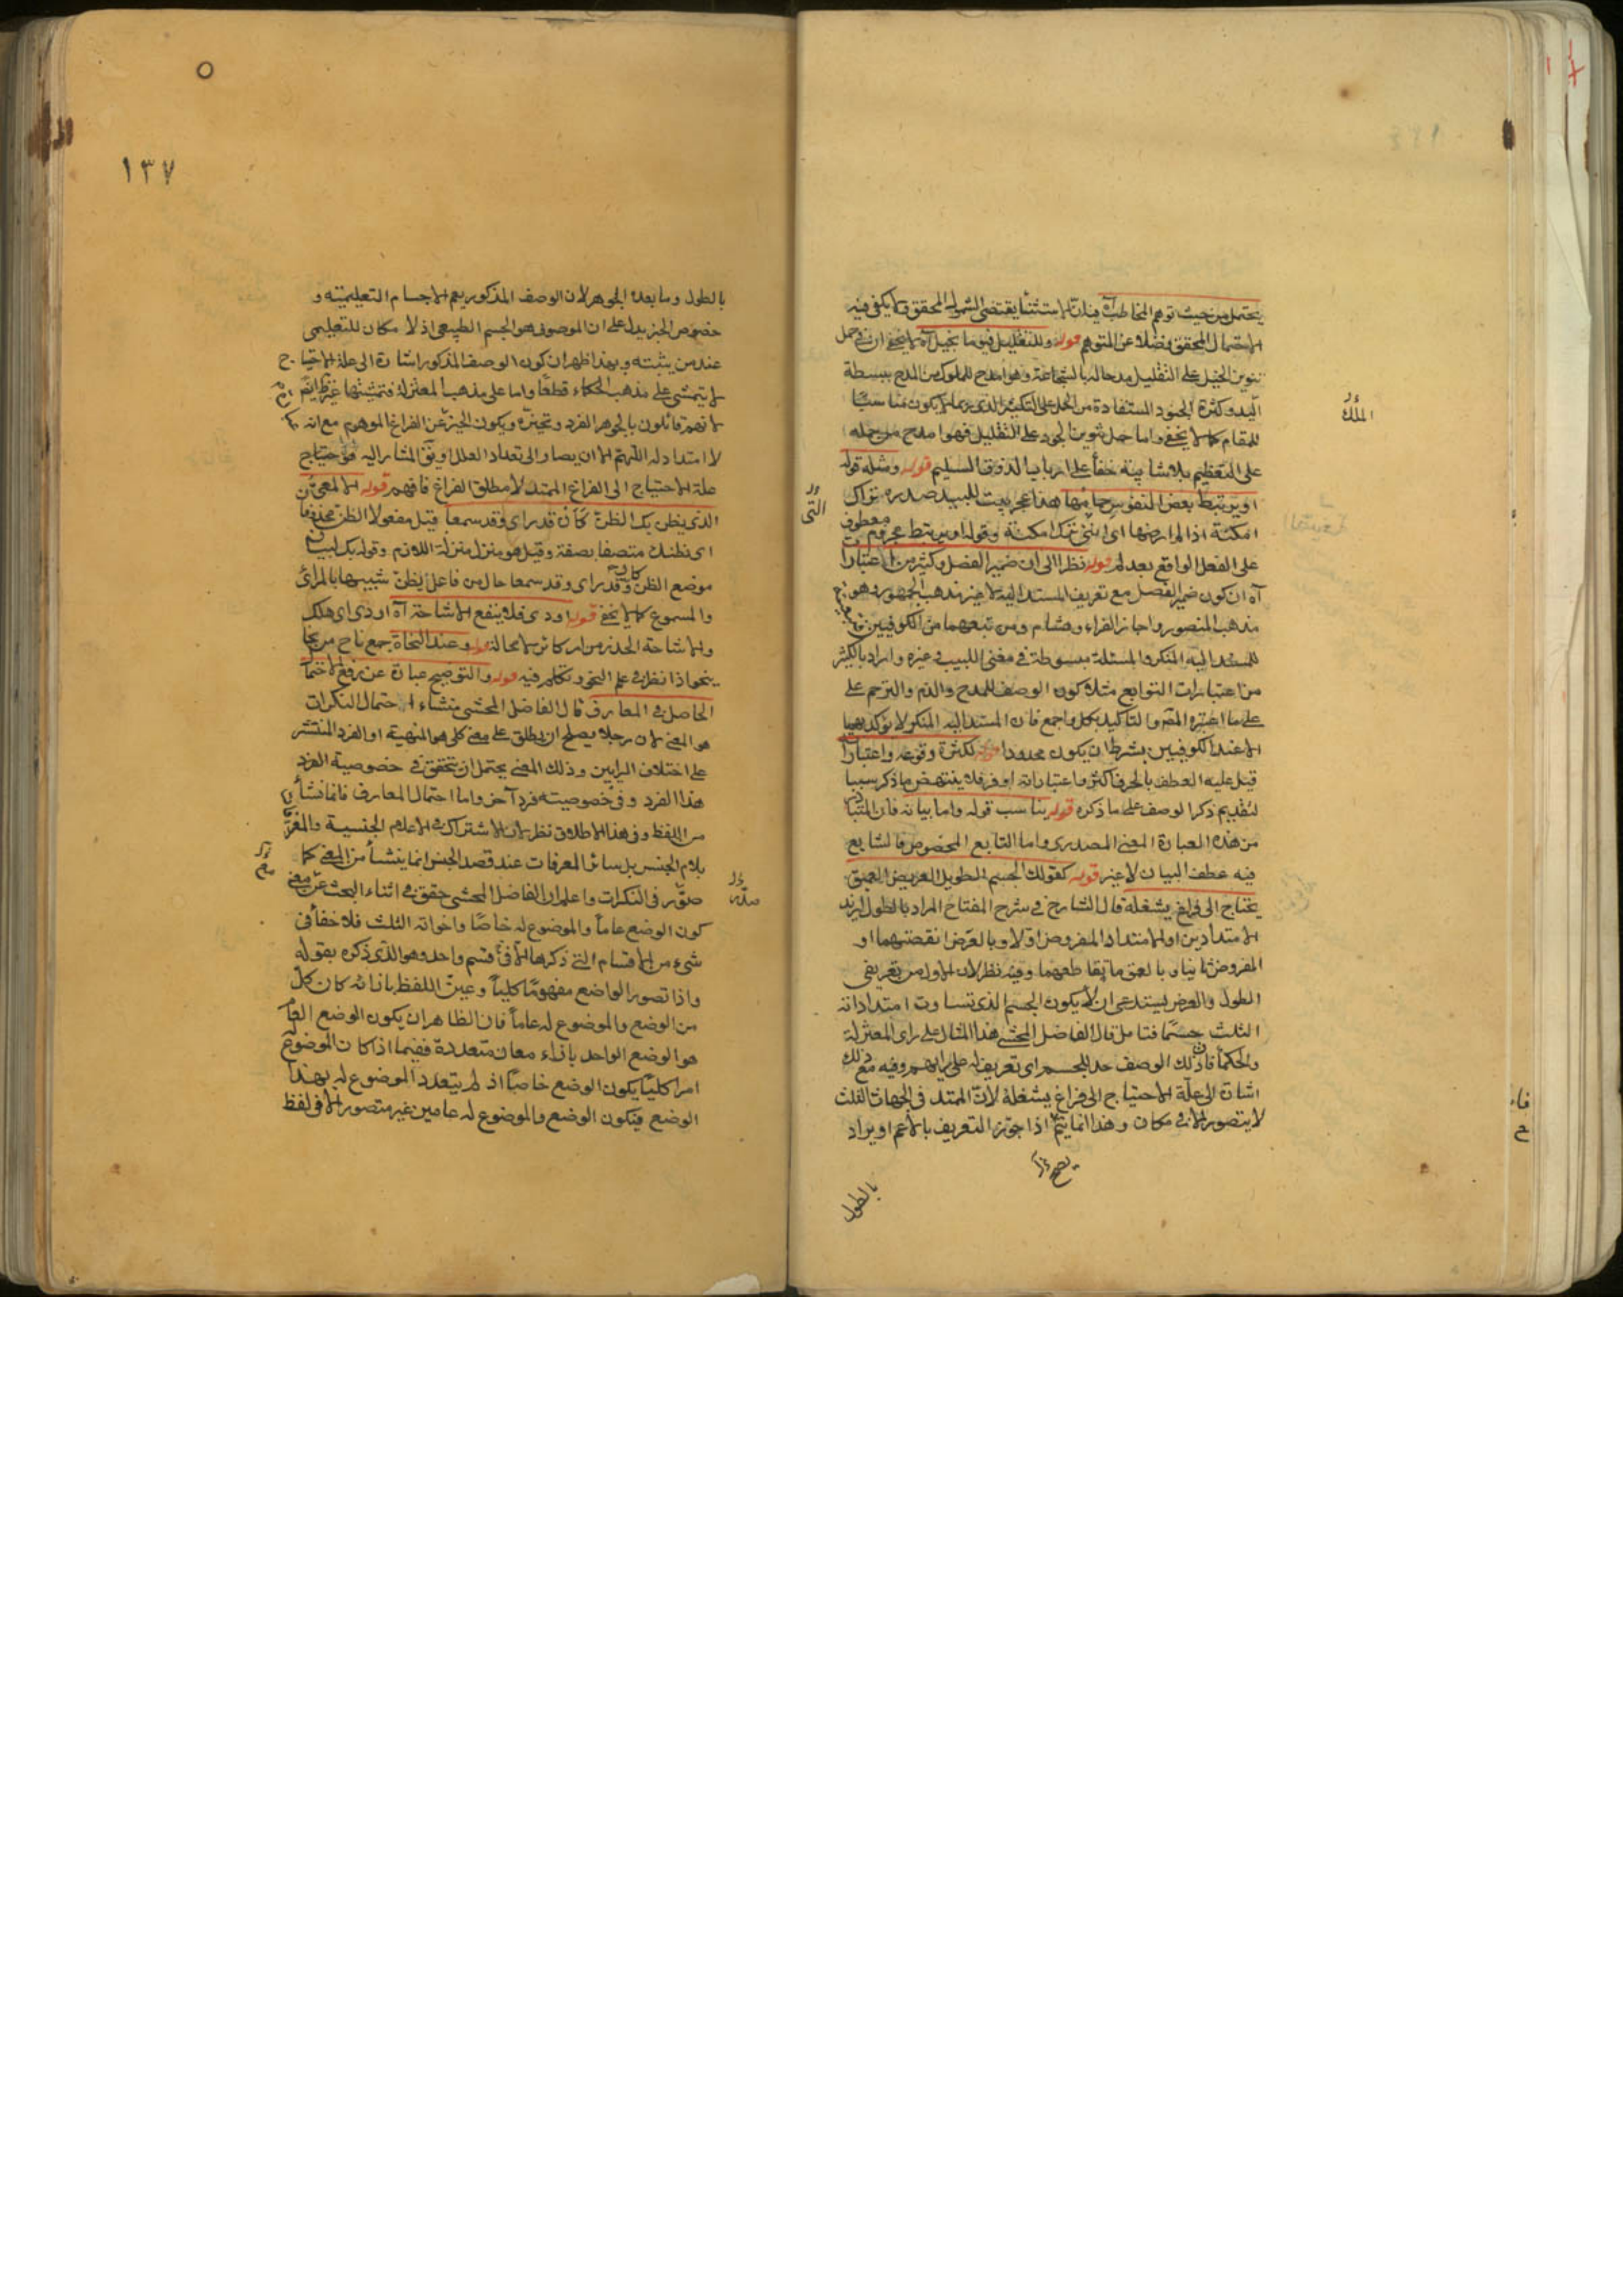 يحتمل من حيث توهم المخاطب آه فيه ان الاستثناء يقتضي الشمول المحقق ولا يكفي فيه
الاحتمال المحقق فضلا عن المتوهم قوله وللتقليل فيق ما بخيل آه لا يخفى ان في حمل
تنوين الخيل على التقليل مدحا له بالشجاعة وهو امدح للملوك من المدح ببسطة
اليد وكثرة الجنود المستفادة من الحمل على التكثير الذي ربما لا يكون مناسبا
للمقام كما لا يخفى واما حمل تنوين الجود على التقليل فهو امدح من حمله
على التعظيم بلا شائبة خفاء على ارباب الذوق السليم قوله ومثله قوله
او يرتبط بعض النفوس حمامها هذا عجز بيت للبيد صدره تراك
امكنة اذا لم ارضها اي انني تراك امكنة وقوله او يرتبط مجزوم معطوف
على الفعل الواقع بعد لم قوله نظرا الى ان ضمير الفصل وكثير من اعتبارا
آه ان كون ضمير الفصل مع تعريف المسند اليه لا غير مذهب الجمهور وهو
مذهب المنصور واجاز الفراء وهشام ومن تبعهما من الكوفيين
للمسند اليه المنكر والمسئلة مبسوطة في مغني اللبيب وغيره واراد بالكثير
من اعتبارات التوابع مثلا كون الوصف للمدح والذم والترحم على
على ما اختره المص والتاكيد بكل واجمع فان المسند اليه المنكر لا يؤكد بهما
الا عند الكوفيين بشرط ان يكون محدودا قوله لكثرة وقوعه واعتبارا
قيل عليه العطف بالحرف اكثر واعتباراته اوفر فلا ينتهض ما ذكر سببا
لتقديم ذكر الوصف على ما ذكره قوله يناسب قوله واما بيانه فان المتبا
من هذه العبارة المعنى المصدري واما التابع المخصوص فالشايع
فيه عطف البيان لا غير قوله كقولك الجسم الطويل العريض العميق
يحتاج الى فراغ يشغله قال الشارح في شرح المفتاح المراد بالطول ازيد
الامتدادين او الامتداد المفروض اولا وبالعرض انقصهما او
المفروض ثانيا وبالعمق ما يقاطعهما وفيه نظر لان الاول من تعريفي
الطول والعرض يستدعي ان لا يكون الجسم الذي تساوت امتداداته
الثلث جسما فتامل قال الفاضل المحشي هذا المثال على راى المعتزلة
والحكماء فان ذلك الوصف حد للجسم اى تعريف له على رايهم وفيه مع ذلك
اشارة الى علة الاحتياج الى فراغ يشغله لان الممتد في الجهات الثلث
لا يتصور الا في مكان وهذا انما يتم اذا جوز التعريف بالاعم او يراد
بالطول
الملك
١٣٧
بالطول وما بعده الجوهر لان الوصف المذكور يعم الاجسام التعليمية و
خصوص الجزء يدل على ان الموصوف هو الجسم الطبيعي اذ لا مكان للتعليمي
عند من يثبته وبهذا ظهر ان كون الوصف المذكور اشارة الى علة الاحتياج
لا يتمشى على مذهب الحكماء قطعا واما على مذهب المعتزلة فتمشيتها غير ظ ايضا
لانهم قائلون بالجوهر الفرد وتحيزه ويكون الحيز عن الفراغ الموهوم مع انه
لا امتداد له اللهم الا ان يصار الى تعداد العلل او يق المشار اليه هو احتياج
علة الاحتياج الى الفراغ الممتد لا مطلق الفراغ فافهم قوله الالمعي
الذي يظن بك الظن كأن قد راى وقد سمعا قيل مفعولا الظن محذوفا
اى يظنك متصفا بصفة وقيل هو منزل منزلة اللازم وقوله بك لبيان
موضع الظن وكأن قد راى وقد سمعا حال من فاعل يظن شبيها بالمرائى
والمسموع كما لا يخفى قوله اودى فلا ينفع الاشاحة آه اودى اى هلك
والاشاحة الحذر من امر كائن لا محالة قوله وعند النحاة جمع ناح من نحا
ينحو اذا نظر في علم النحو وتكلم فيه قوله والتوضيح عبارة عن رفع الاحتمال
الحاصل في المعارف قال الفاضل المحشي منشاء احتمال النكرات
هو المعنى لان رجلا يصلح ان يطلق على معنى كلي هو المنهية او الفرد المنتشر
على اختلاف الرايين وذلك المعنى يحتمل ان يتحقق في خصوصية الفرد
هذا الفرد وفي خصوصيته فرد آخر واما احتمال المعارف فانما نشأ
من اللفظ وفي هذا الاطلاق نظر لان الاشتراك في الاعلام الجنسية والمعرف
بلام الجنس بل سائر المعرفات عند قصد الجنس انما ينشأ من المعنى كما
صور في النكرات واعلم ان الفاضل المحشي حقق في اثناء البحث عن معنى
كون الوضع عاما والموضوع له خاصا واخواته الثلث فلا خفأ في
شيء من الاقسام التي ذكرها الا في قسم واحد وهو الذي ذكره بقوله
واذا تصور الواضع مفهوما كليا وعين اللفظ بازائه كان كل
من الوضع والموضوع له عاما فان الظاهر ان يكون الوضع العام
هو الوضع الواحد بازاء معان متعددة ففيما اذا كان الموضوع
امرا كليا يكون الوضع خاصا اذ لم يتعدد الموضوع له بهذا
الوضع فيكون الوضع والموضوع له عامين غير متصور الا في لفظ